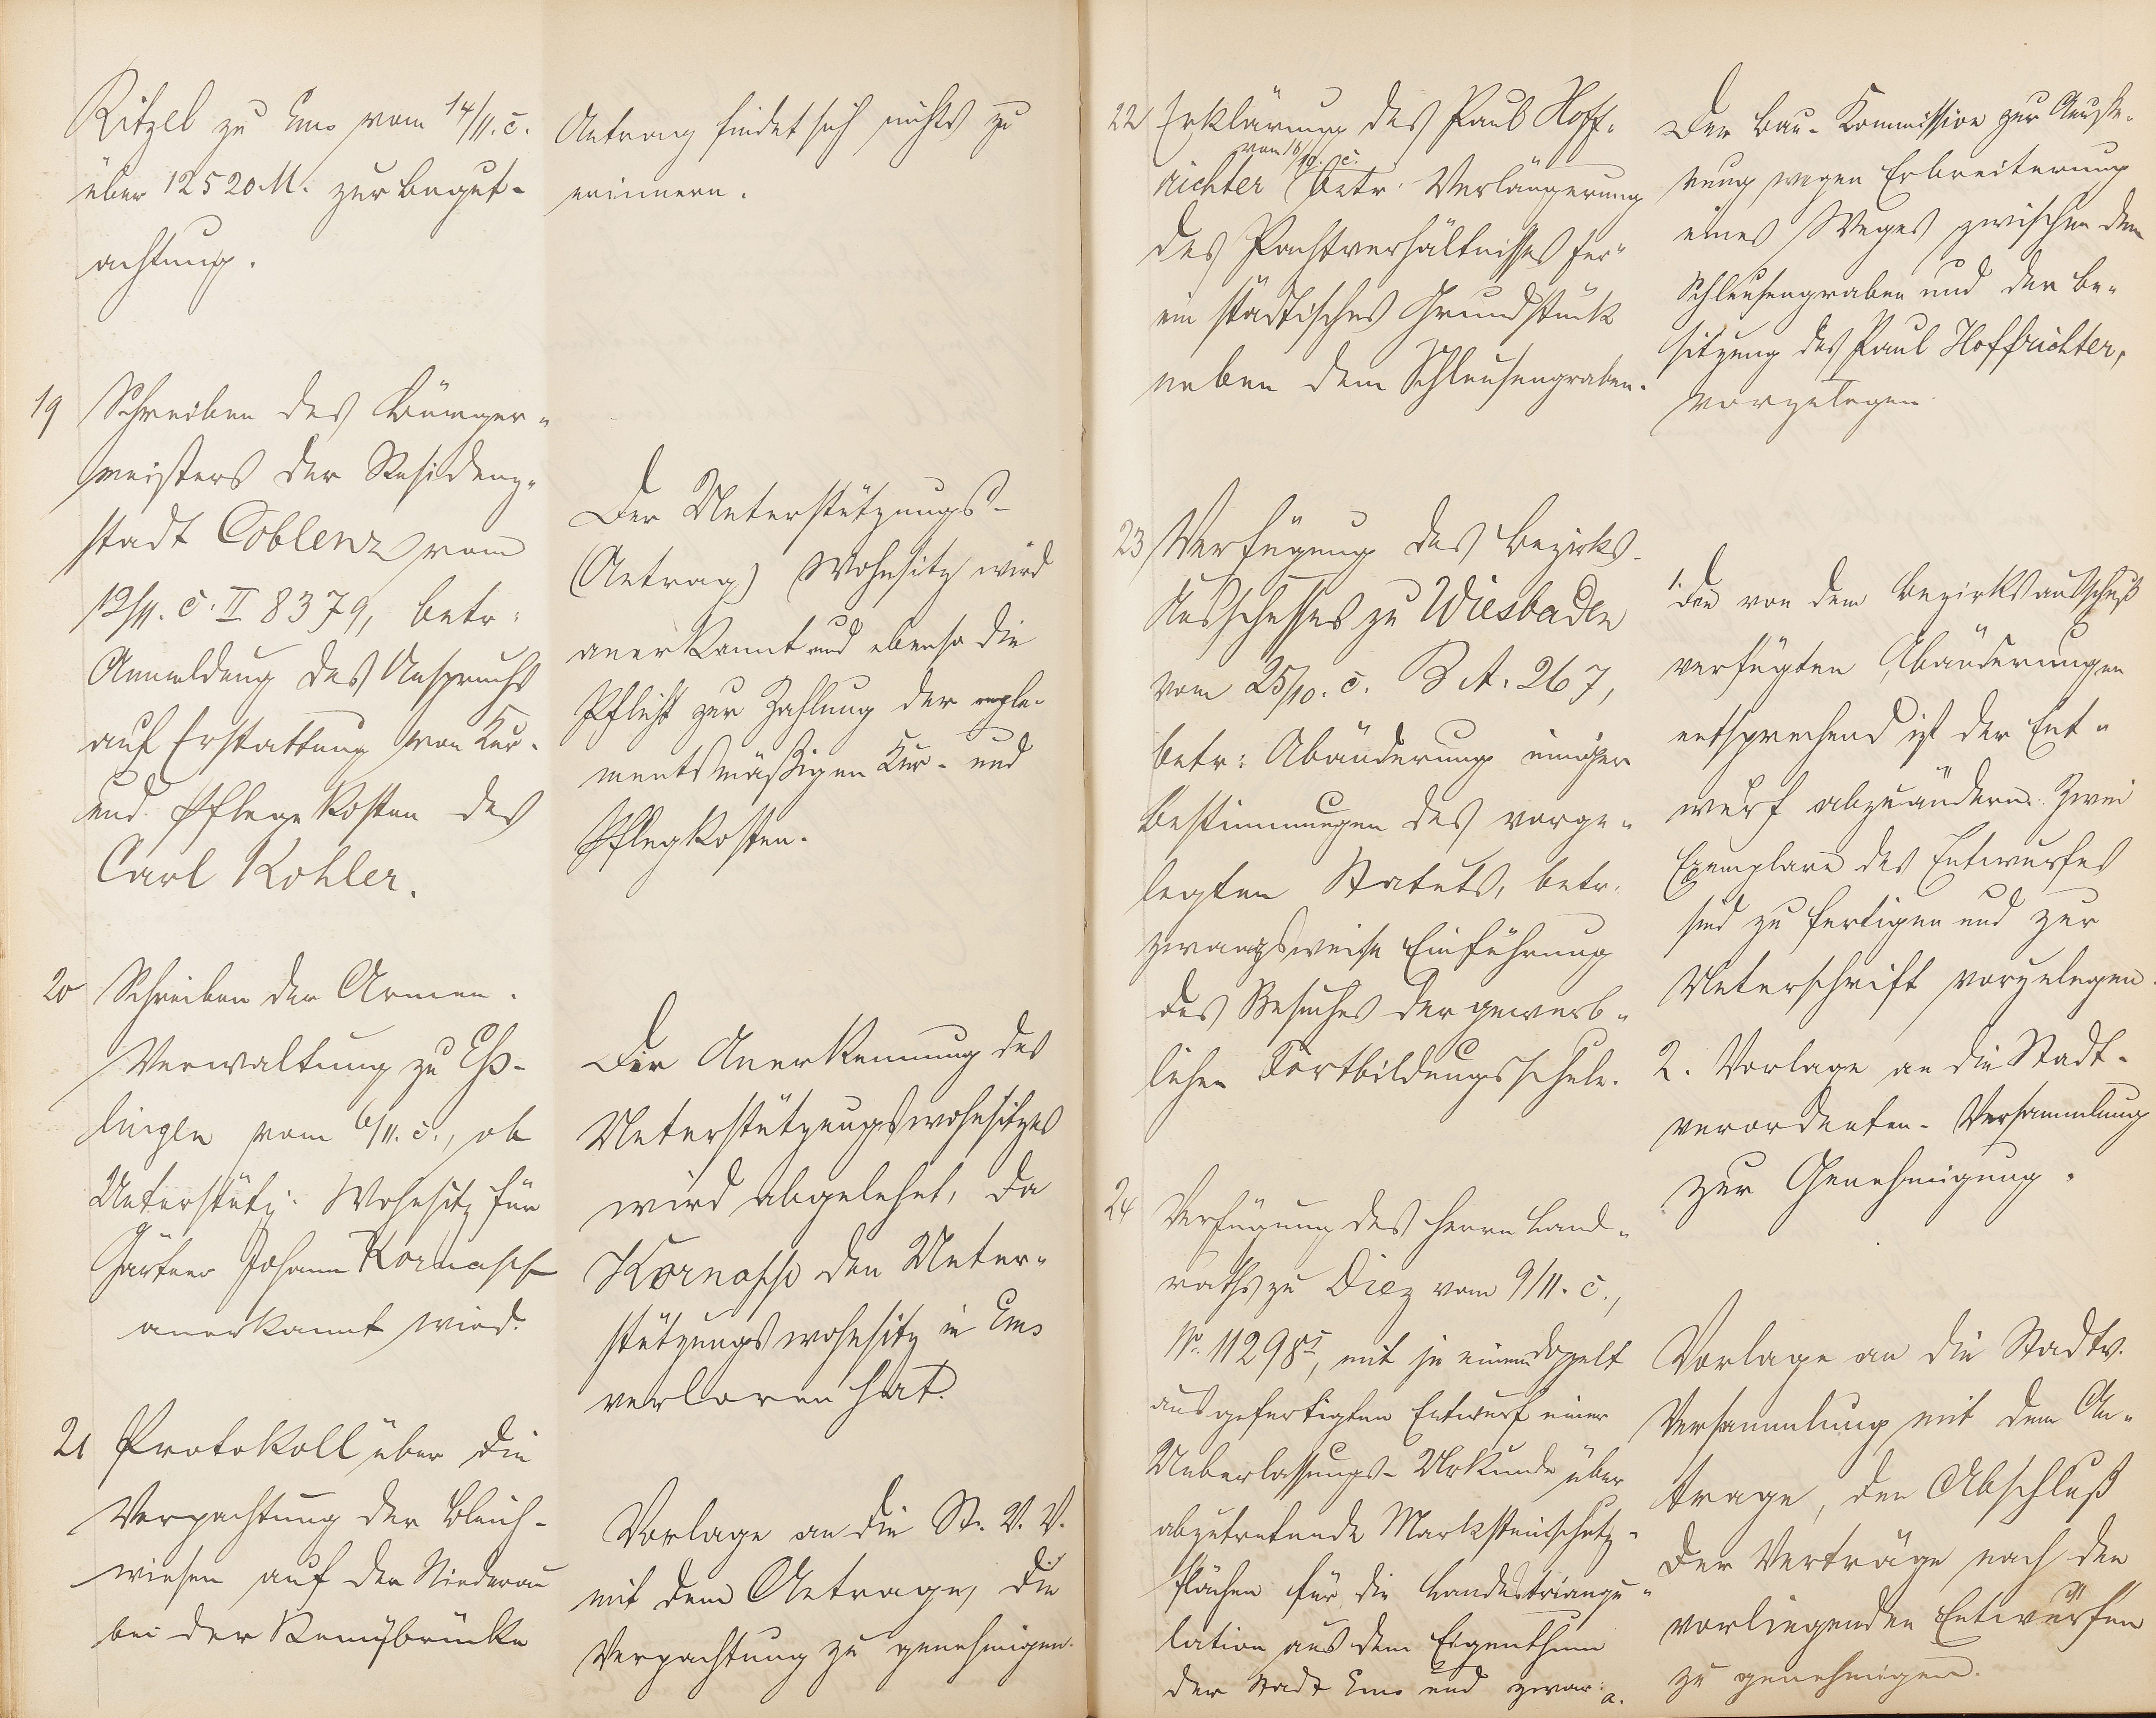 Ritzel zu Ems vom 14/11. c.
über 12520 M. zur Begut-
achtung.
Antrag findet sich nichts zu
erinnern.
19 Schreiben des Bürger-
meisters der Residenz-
stadt Coblenz vom
12/11. c. II 8379, betr:
Anmeldung des Anspruchs
auf Erstattung von Kur-
und Pflegekosten des
Carl Kohler.
Der Unterstützungs-
(Antrag) Wohnsitz wird
anerkannt und ebenso die
Pflicht zur Zahlung der regle-
mentsmäßigen Kur- und
Pflegkosten.
20 Schreiben der Armen-
Verwaltung zu Eß-
lingen vom 6/11. c., ob
Unterstütz: Wohnsitz für
Gärtner Johann Kornasch
anerkannt wird.
Die Anerkennung des
Unterstützungswohnsitzes
wird abgelehnt, da
den Unter-
stützungswohnsitz in Ems
verloren hat.
21 Protokoll über die
Verpachtung der Bleich-
wiesen auf der Niederau
bei der Remybrücke
Vorlage an die St. V. V.
mit dem Antrage, die
Verpachtung zu genehmigen.
22 Erklärung des Paul Hoff-
vom 18/10. c.
richter betr. Verlängerung
des Pachtverhältnisses für
ein städtisches Grundstück
neben dem Schleusengraben.
Der Bau-Kommission zur Aeuße-
rung wegen Erbreiterung
eines Weges zwischen dem
Schleusengraben und der Be-
sitzung des Paul Hoffrichter,
vorzulegen.
23 Verfügung des Bezirks-
Ausschusses zu Wiesbaden
vom 25/10. c. B. A. 267,
betr: Abänderung einiger
Bestimmungen des vorge-
legten Statuts, betr.
zwangsweise Einführung
des Besuches der gewerb-
lichen Fortbildungsschule.
1. Den von dem Bezirksausschuß
verfügten Abänderungen
entsprechend ist der Ent-
wurf abzuändern. Zwei
Exemplare des Entwurfes
sind zu fertigen und zur
Unterschrift vorzulegen.
2. Vorlage an die Stadt-
verordneten-Versammlung
zur Genehmigung.
24 Verfügung des Herrn Land-
raths zu Diez vom 9/11. c.,
No. 11298 I, mit je einem doppelt
ausgefertigten Entwurf einer
Ueberlassungs-Urkunde über
abzutretende Marksteinschutz-
flächen für die Landestriangu-
lation aus dem Eigenthum
der Stadt Ems und zwar: a.
Vorlage an die Stadtv.
Versammlung mit dem An-
trage, den Abschluß
der Verträge nach den
vorliegenden Entwürfen
zu genehmigen.